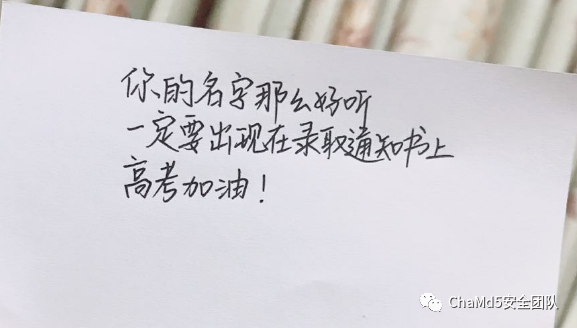 你的名字那么好听
一定要出现在录取通知书上
高考加油!
ChaMd5安全团队